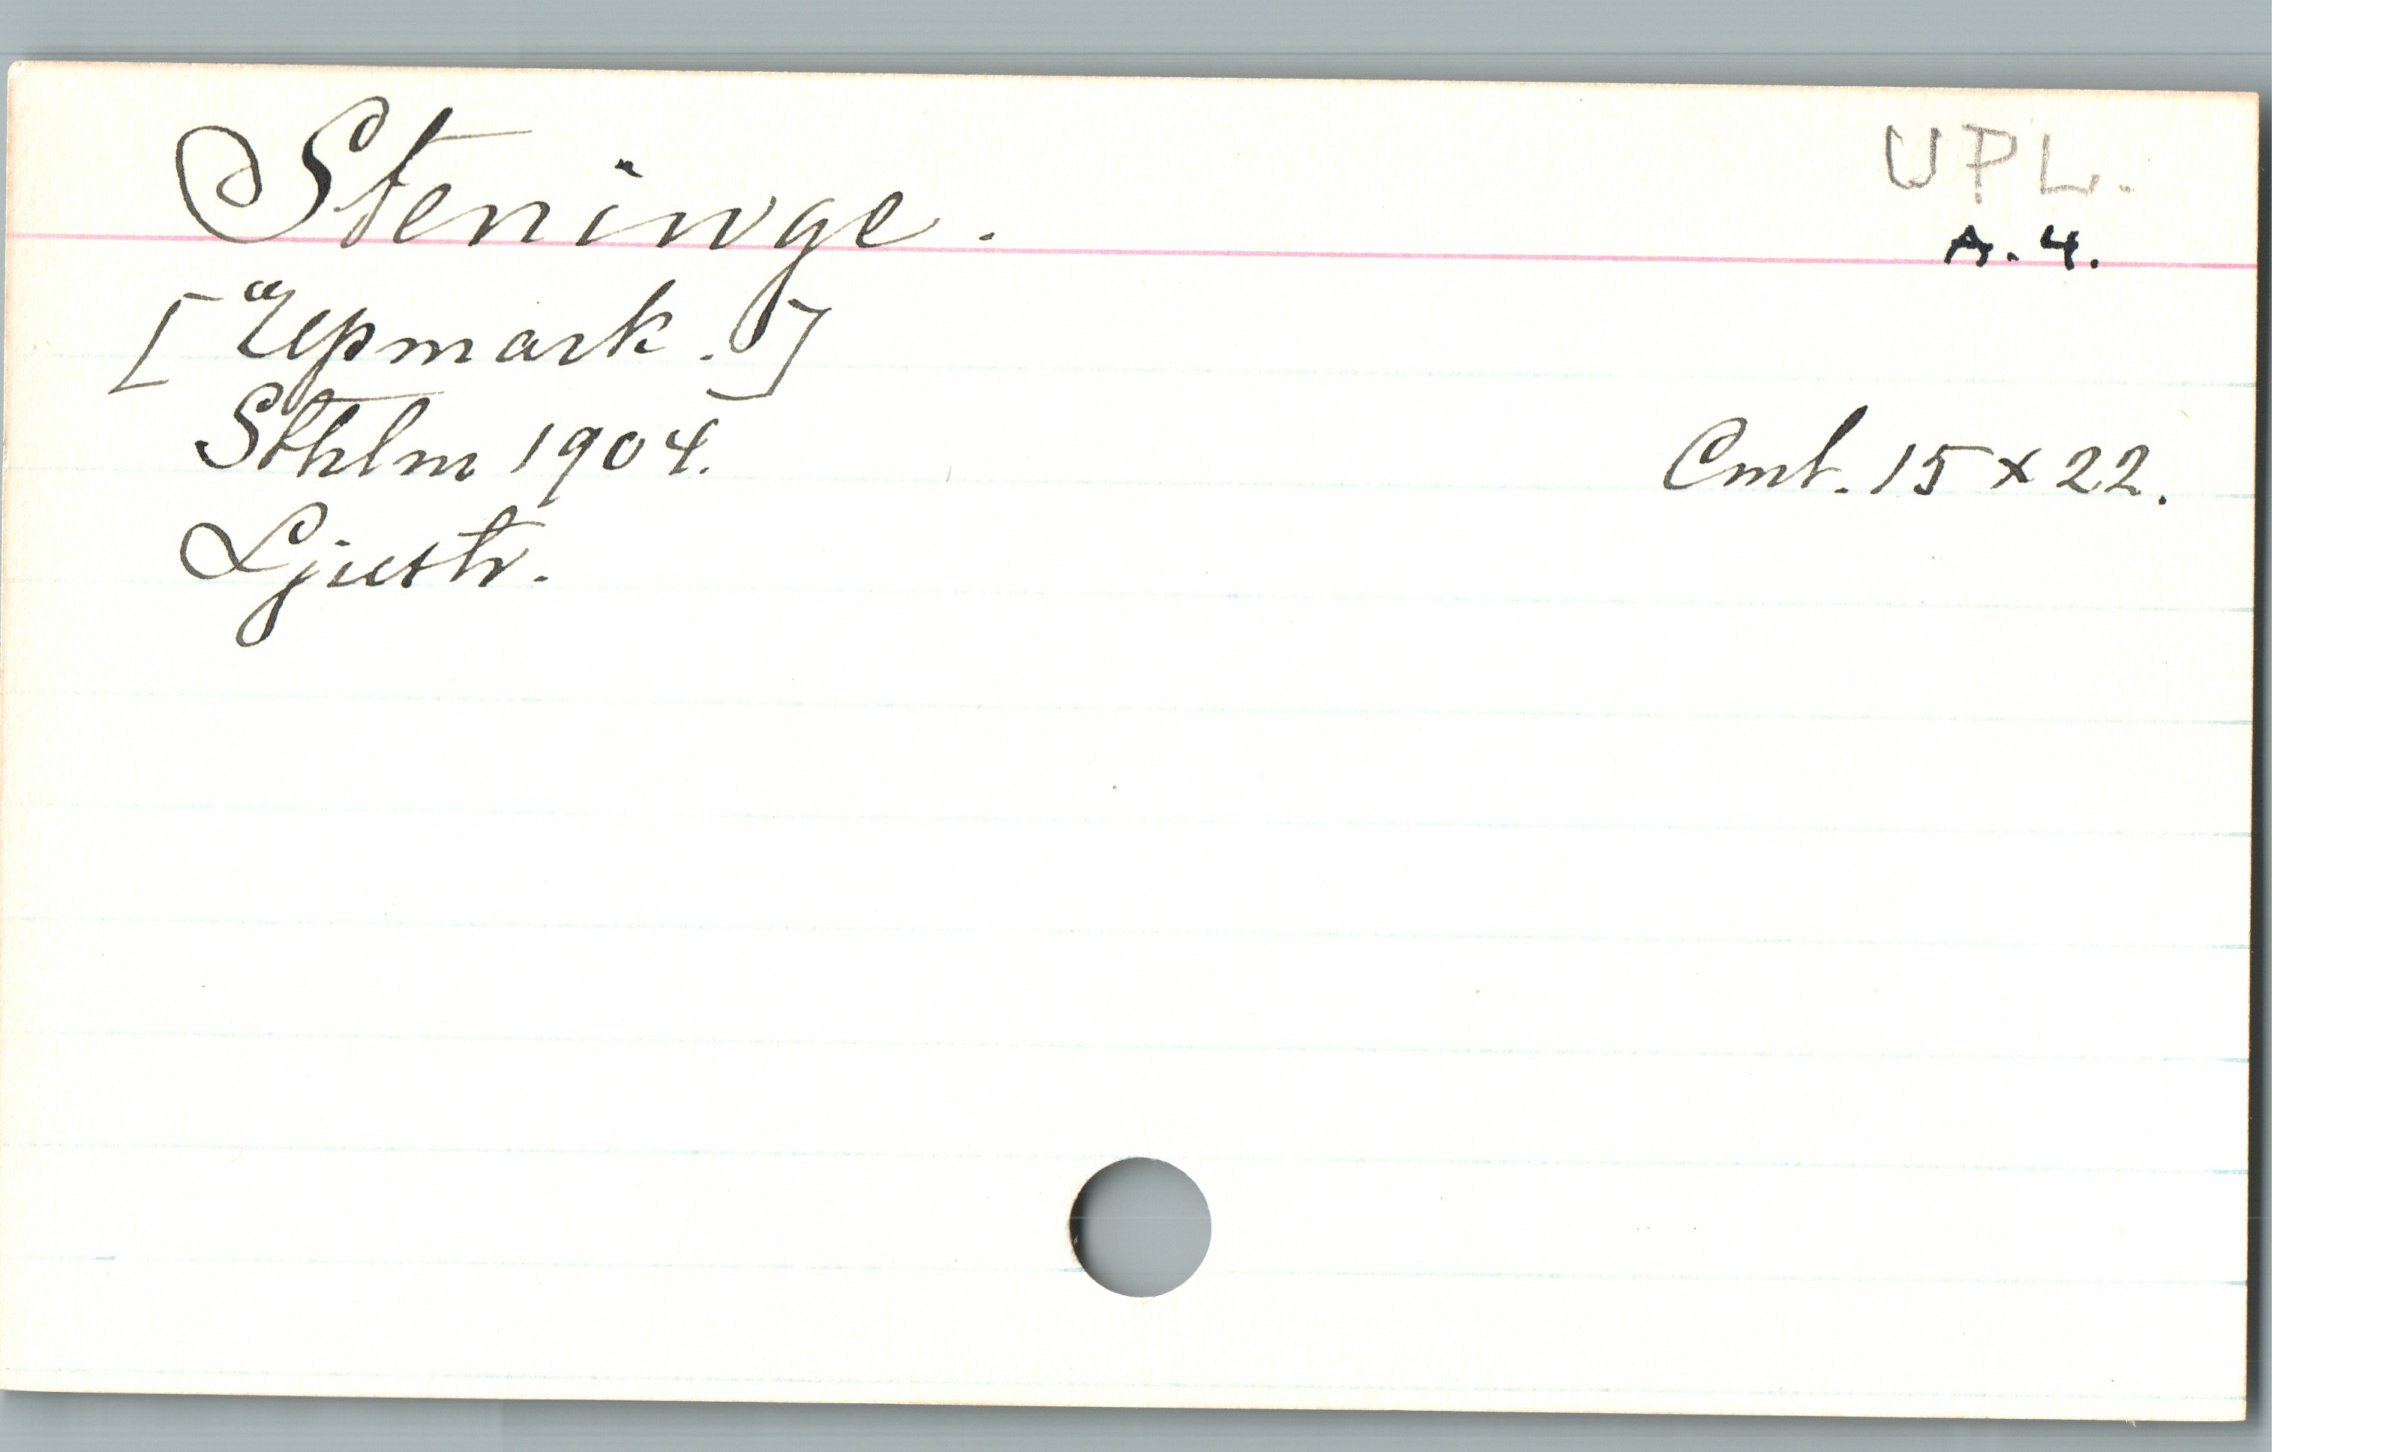 Steninge.
UPL.
A. 4.
[Upmark.]
Sthlm 1904.
Cmt. 15 x 22.
Ljustr.